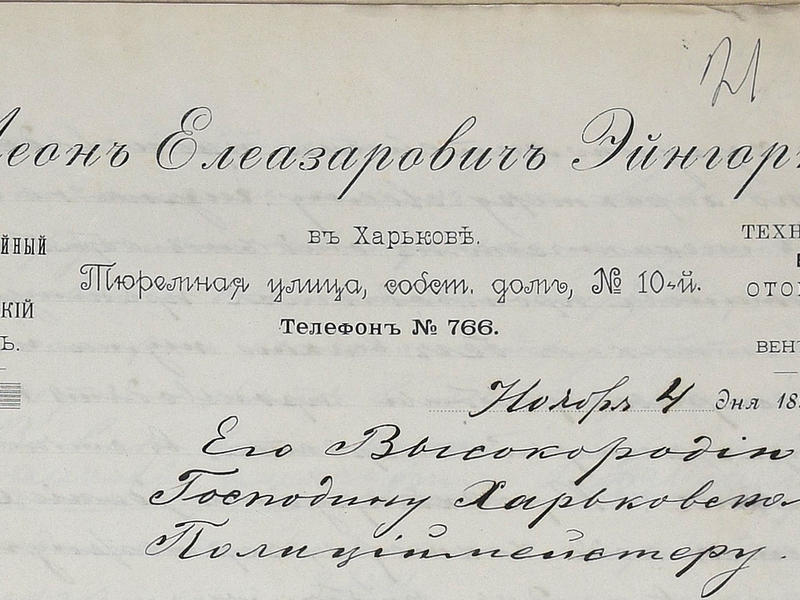 Леонъ Елеазаровичъ Эйнгор
йный
въ Харьковѣ.
ТЕХН
Тюремная улица, собст. домъ, № 10-й.
ОТО
кій
Телефонъ № 766.
Ъ.
ВЕН
Ноября 4 дня 18
Его Высокородію
Господину Харьковском
Полиціймейстеру.